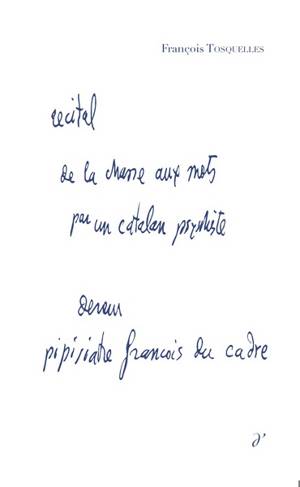 François TOSQUELLES
recital
de la chasse aux mots
par un catalan psychiste
devenu
pipisiatre francois du cadre